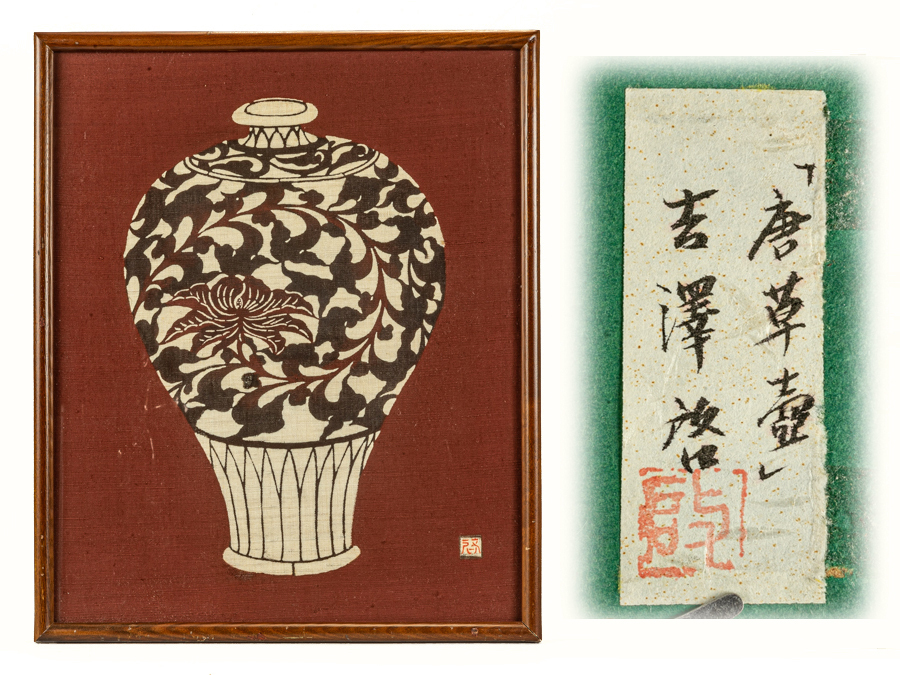 「唐草壺」
吉澤啓